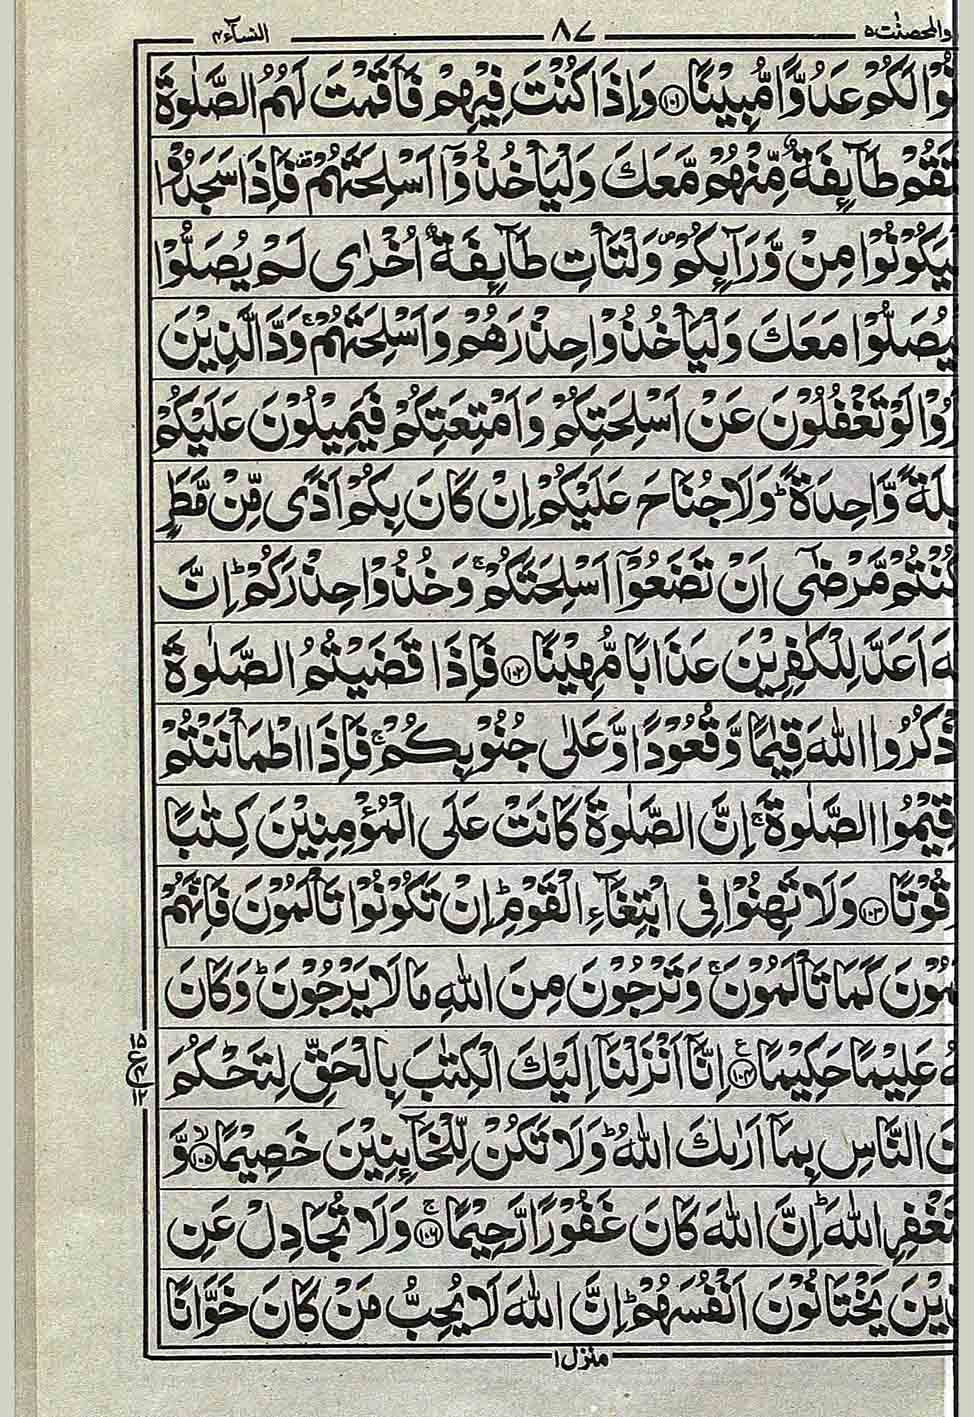 والمحصنت ۵ ۸۷ النسآء ۴
نُوْا لَكُمْ عَدُوًّا مُّبِيْنًا ﴿۱۰۱﴾ وَاِذَا كُنْتَ فِيْهِمْ فَاَقَمْتَ لَهُمُ الصَّلٰوةَ
تَقُمْ طَآئِفَةٌ مِّنْهُمْ مَّعَكَ وَلْيَاْخُذُوْۤا اَسْلِحَتَهُمْ ۫ فَاِذَا سَجَدُوْا
لْيَكُوْنُوْا مِنْ وَّرَآئِكُمْ ۪ وَلْتَاْتِ طَآئِفَةٌ اُخْرٰى لَمْ يُصَلُّوْا
لْيُصَلُّوْا مَعَكَ وَلْيَاْخُذُوْا حِذْرَهُمْ وَاَسْلِحَتَهُمْ ۚ وَدَّ الَّذِيْنَ
رُوْا لَوْ تَغْفُلُوْنَ عَنْ اَسْلِحَتِكُمْ وَاَمْتِعَتِكُمْ فَيَمِيْلُوْنَ عَلَيْكُمْ
يْلَةً وَّاحِدَةً ؕ وَلَا جُنَاحَ عَلَيْكُمْ اِنْ كَانَ بِكُمْ اَذًى مِّنْ مَّطَرٍ
كُنْتُمْ مَّرْضٰۤى اَنْ تَضَعُوْۤا اَسْلِحَتَكُمْ ۚ وَخُذُوْا حِذْرَكُمْ ؕ اِنَّ
هَ اَعَدَّ لِلْكٰفِرِيْنَ عَذَابًا مُّهِيْنًا ﴿۱۰۲﴾ فَاِذَا قَضَيْتُمُ الصَّلٰوةَ
ذْكُرُوا اللّٰهَ قِيٰمًا وَّقُعُوْدًا وَّعَلٰى جُنُوْبِكُمْ ۚ فَاِذَا اطْمَاْنَنْتُمْ
قِيْمُوا الصَّلٰوةَ ۚ اِنَّ الصَّلٰوةَ كَانَتْ عَلَى الْمُؤْمِنِيْنَ كِتٰبًا
قُوْتًا ﴿۱۰۳﴾ وَلَا تَهِنُوْا فِى ابْتِغَآءِ الْقَوْمِ ؕ اِنْ تَكُوْنُوْا تَاْلَمُوْنَ فَاِنَّهُمْ
مُوْنَ كَمَا تَاْلَمُوْنَ ۚ وَتَرْجُوْنَ مِنَ اللّٰهِ مَا لَا يَرْجُوْنَ ؕ وَكَانَ
هُ عَلِيْمًا حَكِيْمًا ﴿۱۰۴﴾ ع اِنَّاۤ اَنْزَلْنَاۤ اِلَيْكَ الْكِتٰبَ بِالْحَقِّ لِتَحْكُمَ
۱۵ ع ۴ ۱۲
نَ النَّاسِ بِمَاۤ اَرٰىكَ اللّٰهُ ؕ وَلَا تَكُنْ لِّلْخَآئِنِيْنَ خَصِيْمًا ﴿۱۰۵﴾ ۙ وَّ
تَغْفِرِ اللّٰهَ ؕ اِنَّ اللّٰهَ كَانَ غَفُوْرًا رَّحِيْمًا ﴿۱۰۶﴾ ۚ وَلَا تُجَادِلْ عَنِ
ذِيْنَ يَخْتَانُوْنَ اَنْفُسَهُمْ ؕ اِنَّ اللّٰهَ لَا يُحِبُّ مَنْ كَانَ خَوَّانًا
منزل ۱